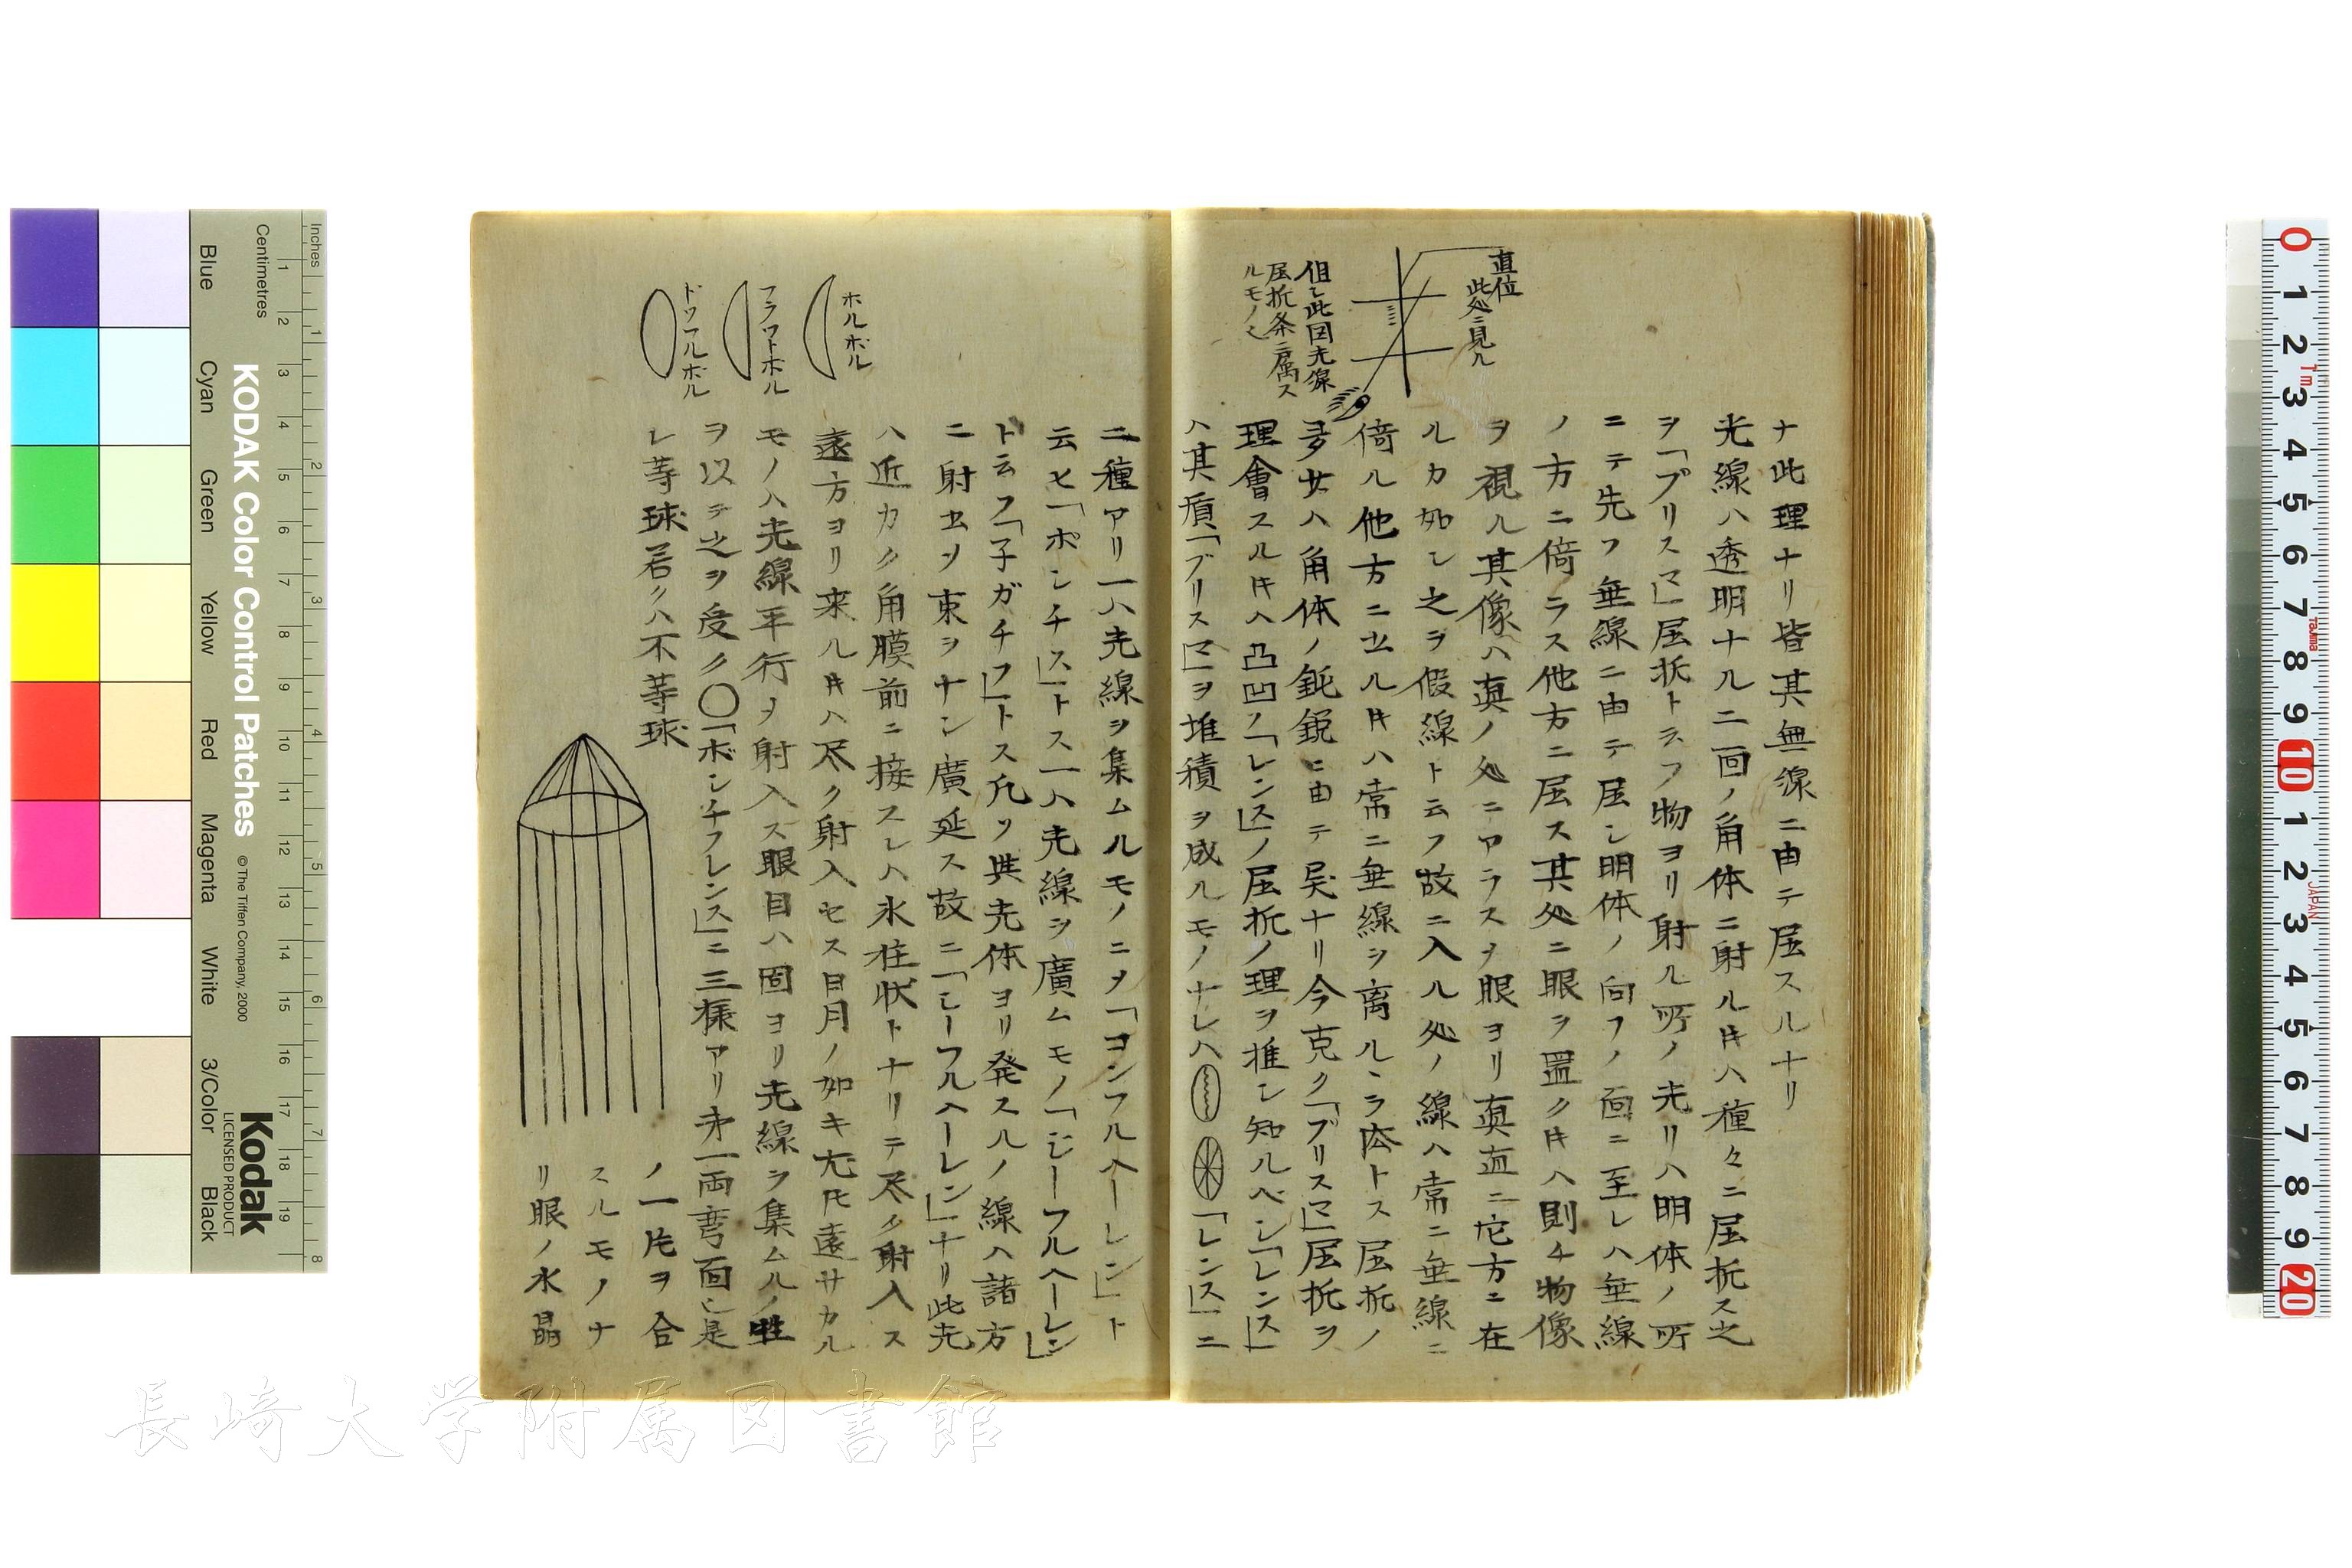 直位
此処ニ見ル
但シ此図光線
屈折条ニ属ス
ルモノ也
ナ此理ナリ皆其無線ニ由テ屈スルナリ
光線ハ透明ナル二面ノ角体ニ射ル片ハ種々ニ屈折ス之
ヲ「プリスマ」屈折ト云フ物ヨリ射ル所ノ光リハ明体ノ所
ニテ先フ垂線ニ由テ屈シ明体ノ向フノ面ニ至レハ垂線
ノ方ニ倚ラス他方ニ屈ス其処ニ眼ヲ置ク片ハ則チ物像
ヲ視ル其像ハ真ノ処ニアラスヲ眼ヨリ真直ニ它方ニ在
ルカ如シ之ヲ假線ト云フ故ニ入ル処ノ線ハ常ニ垂線ニ
倚ル他方ニ出ル片ハ常ニ垂線ヲ离ルヽヲ法トス屈折ノ
多少ハ角体ノ鈍鋭ニ由テ异ナリ今克ク「ブリスマ」屈折ヲ
理會スル片ハ凸凹ノ「レンス」ノ屈折ノ理ヲ推シ知ルベシ「レンス」
ハ其質「ブリスマ」ヲ堆積ヲ成ルモノナレハ「レンス」ニ
ホルボル
フラワトボル
ドワアルボル
二種アリ一ハ光線ヲ集ムルモノニヲ「コンフルヘーレン」ト
云ヒ「ポシチス」トス一ハ光線ヲ廣ムモノ「ジーフルヘーレン」
ト云フ「子ガチフ」トス凡ソ其光体ヨリ発スルノ線ハ諸方
ニ射出ヲ束ヲナシ廣延ス故ニ「ジーフルヘーレン」ナリ此光
ハ近カク角膜前ニ接スレハ氷柱状トナリテ尽ク射入ス
遠方ヨリ来ル片ハ尽ク射入セス日月ノ如キ尤モ遠サカル
モノハ光線平行ヲ射入ス眼目ハ固ヨリ光線ヲ集ムルノ性
ヲ以テ之ヲ受ク〇「ポシチフレンス」ニ三様アリ第一両弯面シ是
レ等球若クハ不等球
ノ一片ヲ合
スルモノナ
リ眼ノ水晶
KODAK Color Control Patches
© The Tiffen Company, 2000
Kodak
LICENSED PRODUCT
Inches
Centimetres
Blue
Cyan
Green
Yellow
Red
Magenta
White
3/Color
Black
長崎大学附属図書館